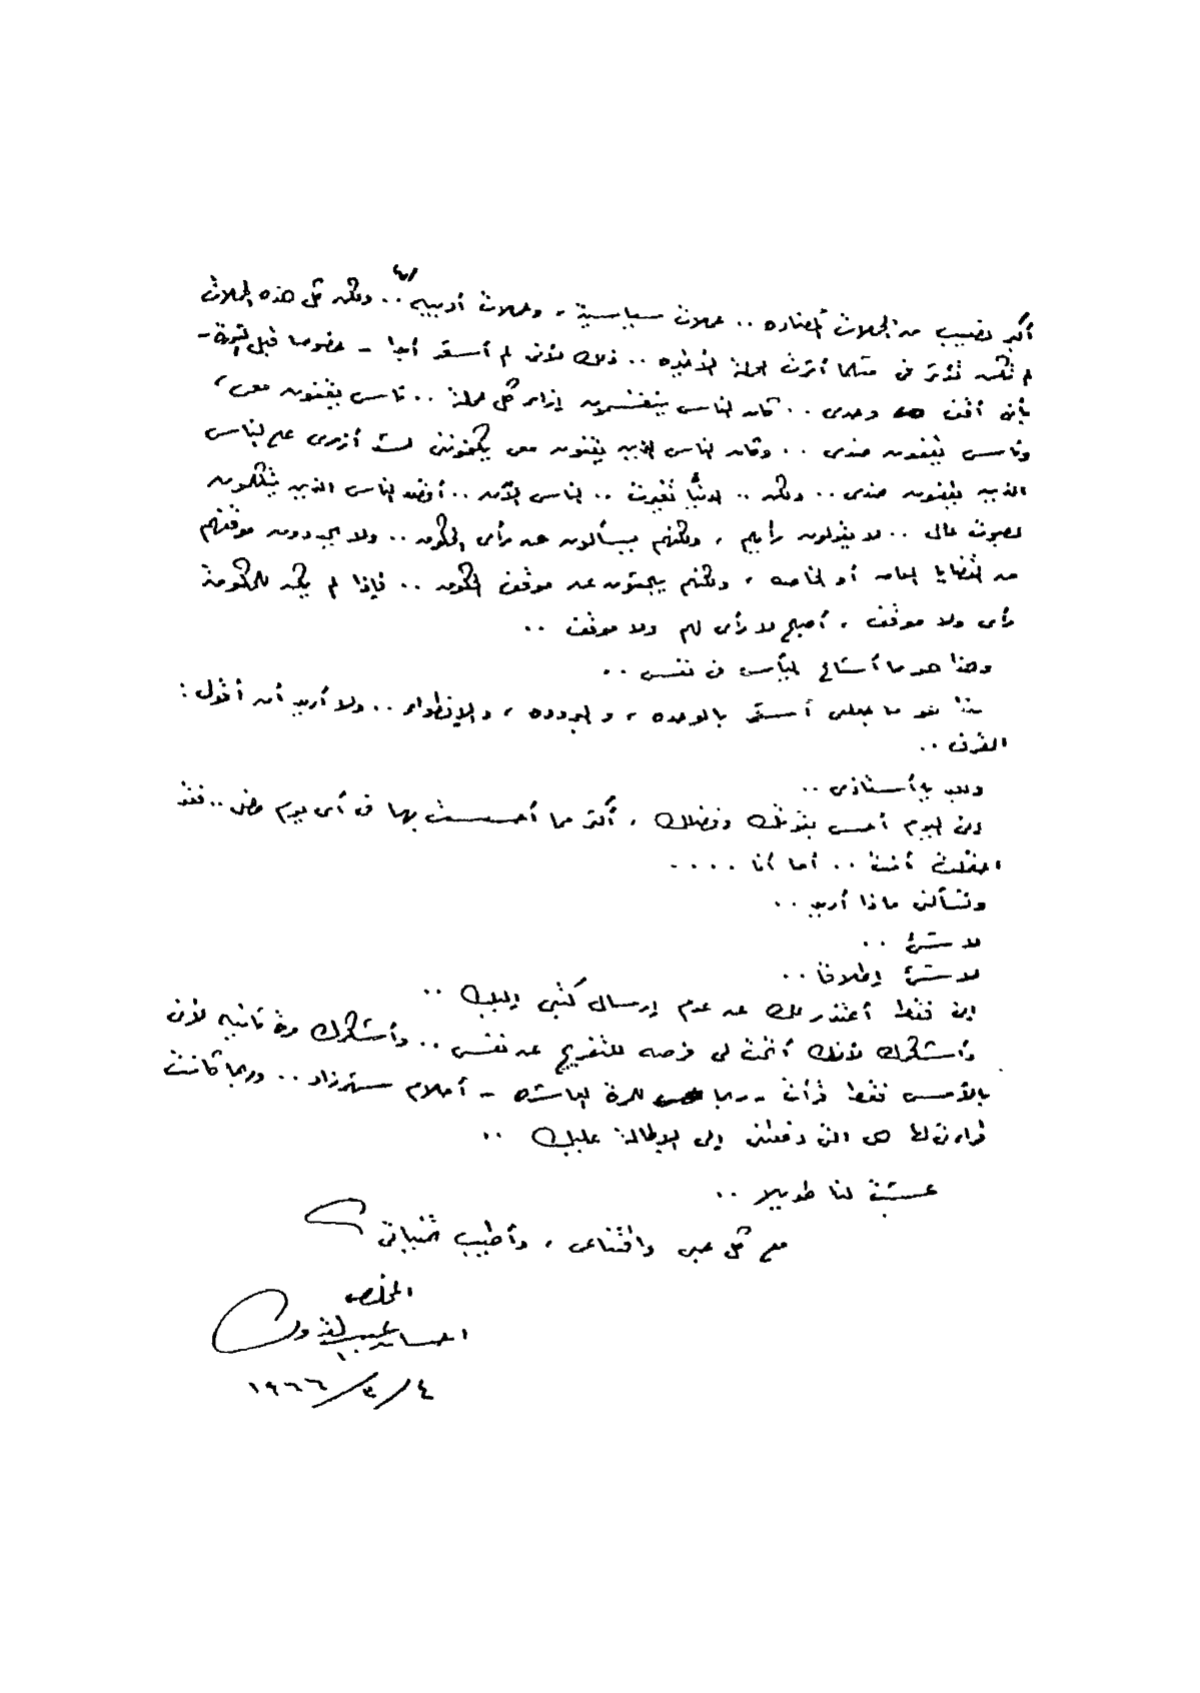 أكبر نصيب من الحملات المضاده .. حملات سياسية ، وحملات أدبيه .. ولكن كل هذه الحملات
لم تكن تؤثر فى مثلما أثرت الحملة الأخيره .. ذلك لأنى لم أشعر أبدا - خصوصا قبل الثورة -
بأنى أقف وحدى .. كان الناس ينقسمون إزاء كل حملة .. ناس يقفون معى ،
وناس يقفون ضدى .. وكان الناس الذين يقفون معى يكفوننى لست أزمى على الناس
الذين يقفون ضدى .. ولكن .. الدنيا تغيرت .. الناس الآن .. أقصد الناس الذين يتكلمون
بصوت عالى .. لا يقولون رأيهم ، ولكنهم يسألون عن رأى الحكومه .. ولا يحددون موقفهم
من القضايا العامه أو الخاصه ، ولكنهم يبحثون عن موقف الحكومه .. فإذا لم يكن للحكومة
رأى ولا موقف ، أصبح لا رأى لهم ولا موقف ..
وهذا هو ما أشاع اليأس فى نفسى ..
هذا هو ما جعلنى أشعر بالوحده ، والبروده ، والإنطواء .. ولا أريد أن أقول :
القرف ..
وبعد يا أستاذى ..
إنى اليوم أحس بقوتك وفضلك ، أكثر مما أحسست بها فى أى يوم مضى .. فقد
احتملت أنت .. أما أنا ....
وتسألنى ماذا أريد ..
لا شئ ..
لا شئ إطلاقا ..
إنى فقط أعتذر لك عن عدم إرسال كتبى إليك ..
وأشكرك لأنك أتحت لى فرصه للتفريج عن نفسى .. وأشكرك مرة ثانيه لأنى
بالأمس فقط قرأت - ربما للمرة العاشره - أحلام شهرزاد .. وربما كانت
قراءتى لها هى التى دفعتنى إلى الإطالة عليك ..
عشت لنا طويلا ..
مع كل حبى واقتناعى ، وأطيب تمنياتى
المخلص
احسان عبد القدوس
٤/٣/١٩٦٦